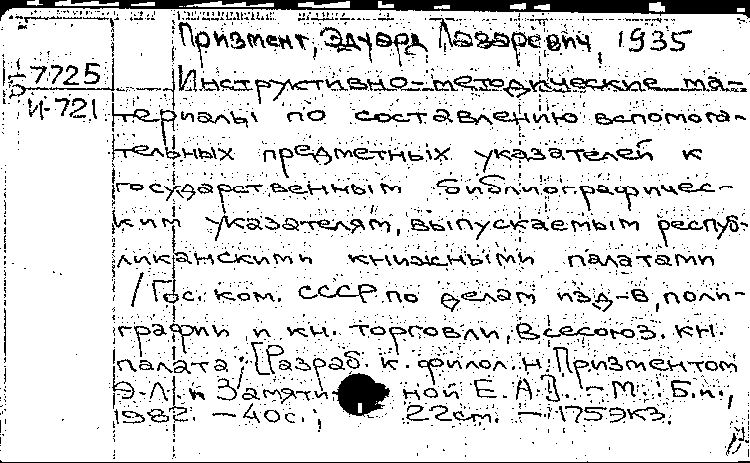 Призмент, Эдуард Лазаревич, 1935
7725
И-721
Инструктивно-методические ма-
териалы по составлению вспомога-
тельных предметных указателей к
государственным библиографичес-
ким указателям, выпускаемым респуб-
ликанскими книжными палатами
/ Гос. ком. СССР по делам изд-в, поли-
графии и кн. торговли, Всесоюз. кн.
палата; [Разраб. к. филол. н. Призментом
Э.Л. и Замяти ной Е.А.]. - М.: Б.и.,
1982. - 40с.; 22см. - 175экз.